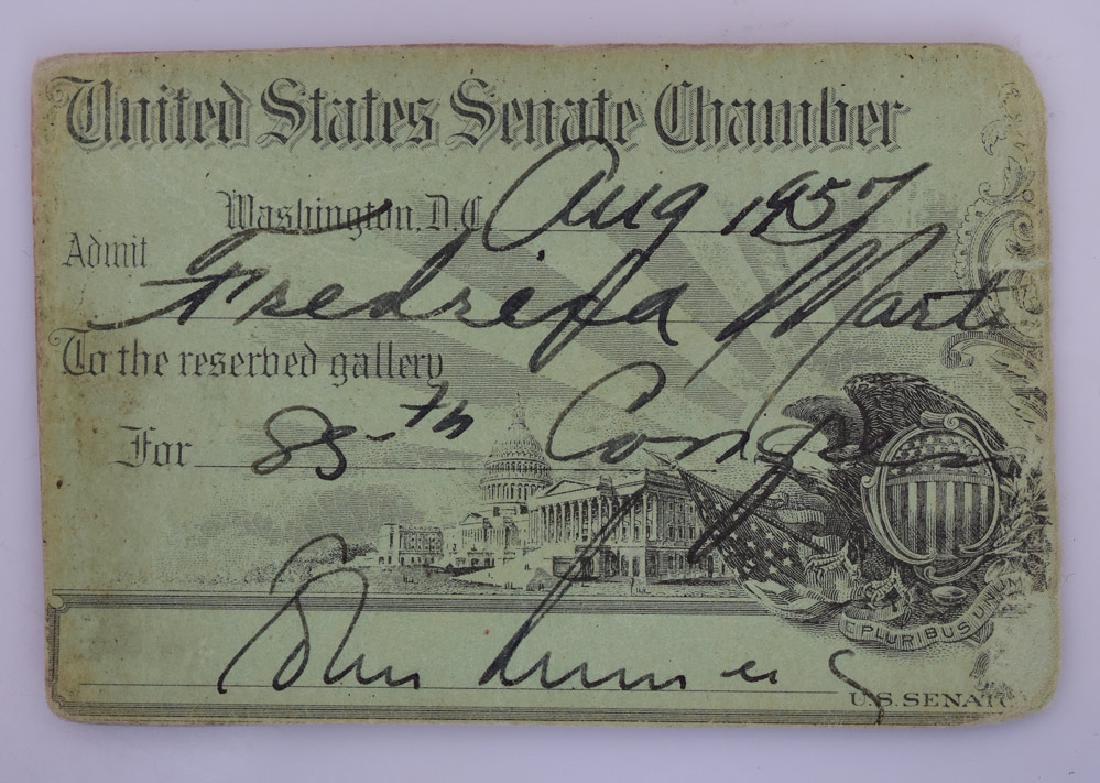 United States Senate Chamber
Washington, D.C. Aug 1957
Admit
Mart
To the reserved gallery
For 85-th Congr
John
U.S. SENAT
E PLURIBUS UNUM